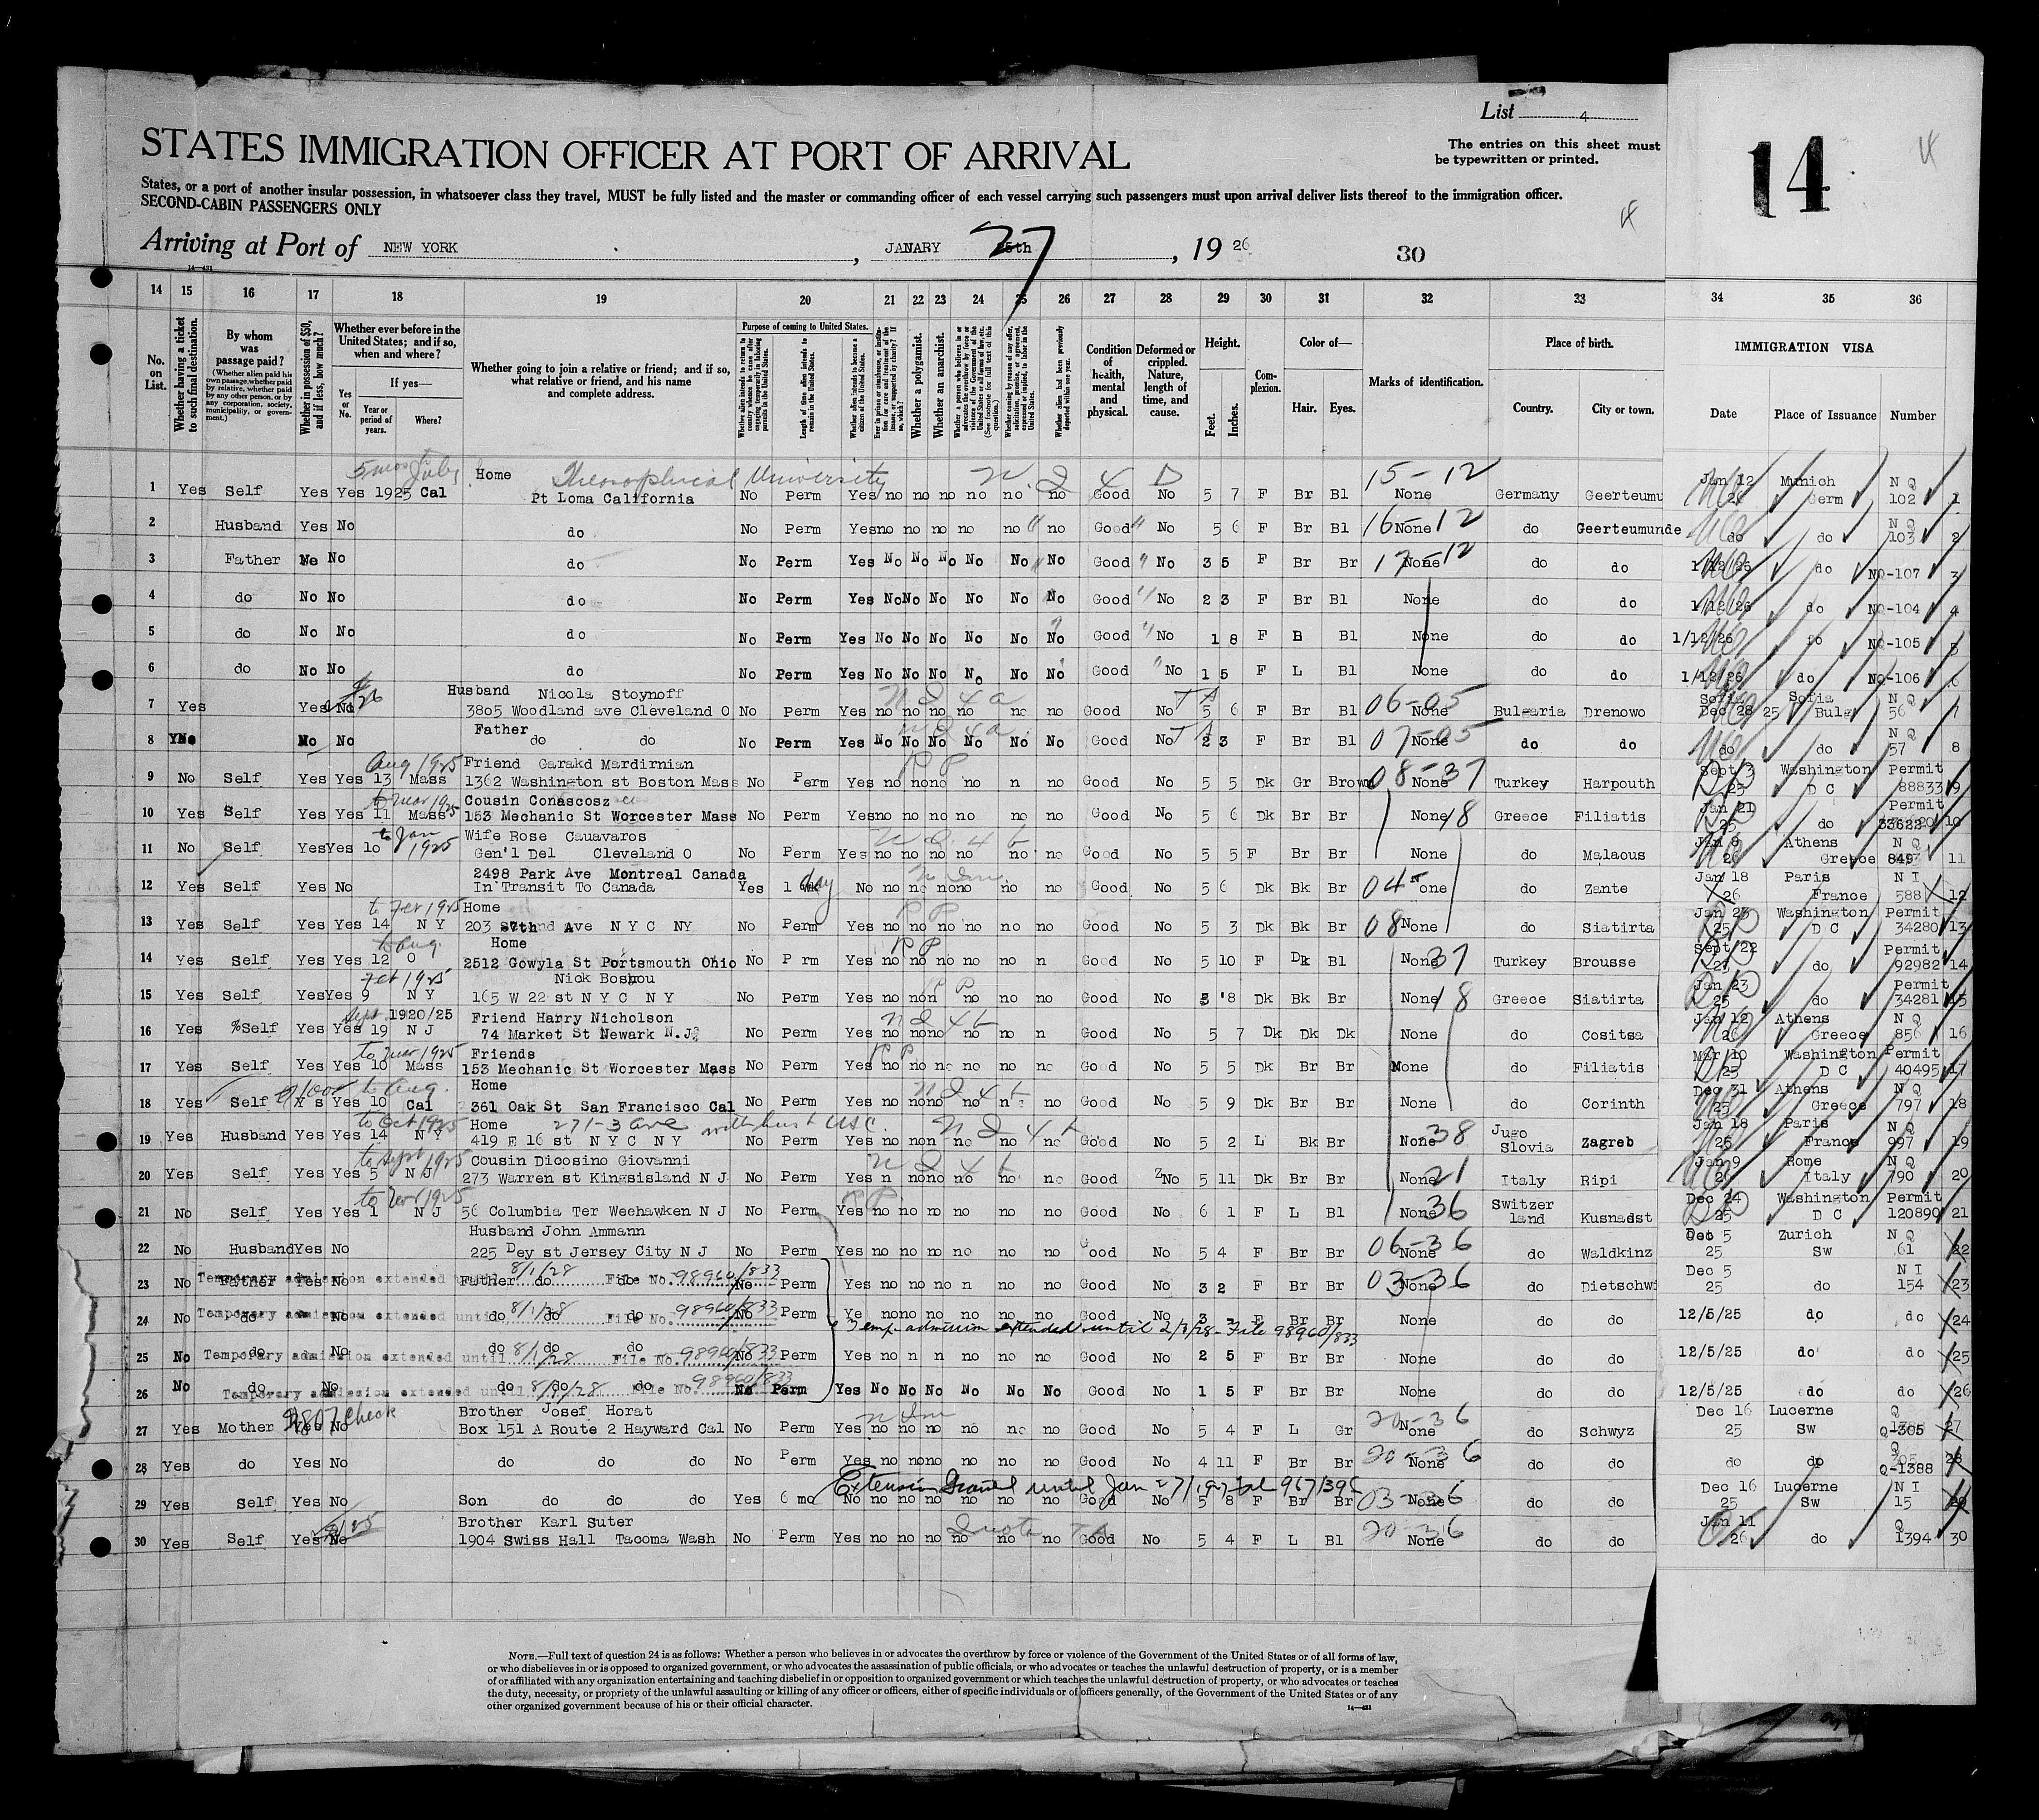 List 4
The entries on this sheet must
be typewritten or printed.
14
STATES IMMIGRATION OFFICER AT PORT OF ARRIVAL
States, or a port of another insular possession, in whatsoever class they travel, MUST be fully listed and the master or commanding officer of each vessel carrying such passengers must upon arrival deliver lists thereof to the immigration officer.
SECOND-CABIN PASSENGERS ONLY
Arriving at Port of NEW YORK , JANARY 27 , 19 26 30
14 15 16 17 18 19 20 21 22 23 24 25 26 27 28 29 30 31 32 33 34 35 36
No. on List.
Whether having a ticket to such final destination.
By whom was passage paid?
(Whether alien paid his own passage, whether paid by relative, whether paid by any other person, or by any corporation, society, municipality, or government.)
Whether in possession of $50, and if less, how much?
Whether ever before in the United States; and if so, when and where?
Yes or No.
If yes—
Year or period of years.
Where?
Whether going to join a relative or friend; and if so, what relative or friend, and his name and complete address.
Purpose of coming to United States.
Length of time alien intends to remain in the United States.
Whether alien intends to become a citizen of the United States.
Whether a polygamist.
Whether an anarchist.
Condition of health, mental and physical.
Deformed or crippled. Nature, length of time, and cause.
Height.
Feet. Inches.
Complexion.
Color of—
Hair. Eyes.
Marks of identification.
Place of birth.
Country. City or town.
IMMIGRATION VISA
Date Place of Issuance Number
5 mos to July Home Theosophical University N.Q 4 D 15-12 Jan 12 Munich N Q
1 Yes Self Yes Yes 1925 Cal Pt Loma California No Perm Yes no no no no no no Good No 5 7 F Br Bl None Germany Geerteumu 26 Germ 102 1
2 Husband Yes No do No Perm Yes no no no no no no Good No 5 6 F Br Bl 16-12 None do Geerteumunde do do N Q 103 2
3 Father No No do No Perm Yes No No No No No No Good No 3 5 F Br Br 17-12 None do do 1/12/26 do NQ-107 3
4 do No No do No Perm Yes No No No No No No Good No 2 3 F Br Bl None do do 1/12/26 do NQ-104 4
5 do No No do No Perm Yes No No No No No No Good No 1 8 F B Bl None do do 1/12/26 do NQ-105 5
6 do No No do No Perm Yes No No No No No No Good No 1 5 F L Bl None do do 1/12/26 do NQ-106 6
Husband Nicola Stoynoff Sofia N Q
7 Yes Yes No 3805 Woodland ave Cleveland O No Perm Yes no no no no no no Good No 5 6 F Br Bl 06-05 None Bulgaria Drenowo Dec 28 25 Bulg 56 7
Father N Q
8 No No do do No Perm Yes No No No No No No Good No 2 3 F Br Bl 07-05 None do do do do 57 8
Aug 1925 Friend Garakd Mardirnian P P Sept 3 Washington Permit
9 No Self Yes Yes 13 Mass 1362 Washington st Boston Mass No Perm Yes no no no no n no Good No 5 5 Dk Gr Brown 08-37 None Turkey Harpouth 25 D C 88833 9
to Mar 1925 Cousin Conascosz Jan 21 Permit
10 Yes Self Yes Yes 11 Mass 153 Mechanic St Worcester Mass No Perm Yes no no no no no no Good No 5 6 Dk Br Br None 18 Greece Filiatis 25 do 10
to Jan 1925 Wife Rose Cauavaros Jan 8 Athens N Q
11 No Self Yes Yes 10 Gen'l Del Cleveland O No Perm Yes no no no no no no Good No 5 5 F Br Br None do Malaous 26 Greece 849 11
2498 Park Ave Montreal Canada Jan 18 Paris N I
12 Yes Self Yes No In Transit To Canada Yes 1 day No no no no no no no Good No 5 6 Dk Bk Br 04 None do Zante 26 France 588 12
to Fer 1925 Home P P Jan 23 Washington Permit
13 Yes Self Yes Yes 14 N Y 203 Ave N Y C NY No Perm Yes no no no no no no Good No 5 3 Dk Bk Br 08 None do Siatirta 25 D C 34280 13
to Aug. Home P P Sept 22 Permit
14 Yes Self Yes Yes 12 O 2512 Gowyla St Portsmouth Ohio No P rm Yes no no no no no n Good No 5 10 F Dk Bl None 37 Turkey Brousse 25 do 92982 14
Fer 1925 Nick Boshou P P Jan 23 Permit
15 Yes Self Yes Yes 9 N Y 165 W 22 st N Y C N Y No Perm Yes no no n no no no Good No 5 '8 Dk Bk Br None 18 Greece Siatirta 25 do 34281 15
Sept 1920/25 Friend Harry Nicholson Jan 12 Athens N Q
16 Yes %Self Yes Yes 19 N J 74 Market St Newark N.J. No Perm Yes no no no no no n Good No 5 7 Dk Dk Dk None do Cositsa 26 Greece 856 16
to Mar 1925 Friends P P Mar 10 Washington Permit
17 Yes Self Yes Yes 10 Mass 153 Mechanic St Worcester Mass No Perm Yes no no no no no no Good No 5 5 Dk Br Br None do Filiatis 25 D C 40495 17
to Aug. Home Dec 31 Athens N Q
18 Yes Self Y s Yes 10 Cal 361 Oak St San Francisco Cal No Perm Yes no no no no n no Good No 5 9 Dk Br Br None do Corinth 25 Greece 797 18
to Oct 1925 Home 271-3 ave with hust USC. Jan 18 Paris N Q
19 Yes Husband Yes Yes 14 N Y 419 E 16 st N Y C N Y No Perm Yes no no n no no no Good No 5 2 L Bk Br None 38 Jugo Slovia Zagreb 26 France 997 19
to Sept 1925 Cousin Dicosino Giovanni Jan 9 Rome N Q
20 Yes Self Yes Yes 5 N J 273 Warren st Kingsisland N J No Perm Yes n no no no no no Good No 5 11 Dk Br Br None 21 Italy Ripi 26 Italy 790 20
to Nov 1925 P P. Dec 24 Washington Permit
21 No Self Yes Yes 1 N J 56 Columbia Ter Weehawken N J No Perm Yes no no no no no no Good No 6 1 F L Bl None 36 Switzer land Kusnadst 25 D C 120890 21
Husband John Ammann Dec 5 Zurich N Q
22 No Husband Yes No 225 Dey st Jersey City N J No Perm Yes no no no no no no Good No 5 4 F Br Br 06-36 None do Waldkinz 25 Sw 61 22
Temporary admission extended until 8/1/28 File No. 98960/833 Dec 5 N I
23 No Father Yes No Father do do No Perm Yes no no no no n no Good No 3 2 F Br Br 03-36 None do Dietschwi 25 do 154 23
Temporary admission extended until 8/1/28 File No. 98960/833
24 No do No do do do No Perm Ye no no no no no no Good No 3 - F Br Br None do do 12/5/25 do do 24
Temp admission extended until 2/1/28- File 98960/833
Temporary admission extended until 8/1/28 File No. 98960/833
25 No do No do do do No Perm Yes no n n no no no Good No 2 5 F Br Br None do do 12/5/25 do do 25
Temporary admission extended until 8/1/28 File No. 98960/833
26 No do No do do do No Perm Yes No No No No No No Good No 1 5 F Br Br None do do 12/5/25 do do 26
$807 check Brother Josef Horat Dec 16 Lucerne Q
27 Yes Mother Yes No Box 151 A Route 2 Hayward Cal No Perm Yes no no no no no no Good No 5 4 F L Gr 20-36 None do Schwyz 25 Sw Q-305 27
28 Yes do Yes No do do do No Perm Yes no no no no no no Good No 4 11 F Br Br 20-36 None do do do do Q-1388 28
Extension Granted until Jan 27/1927 Dec 16 Lucerne N I
29 Yes Self Yes No Son do do do Yes 6 mo No no no no no no no Good No 5 8 F Br Br 03-36 None do do 25 Sw 15 29
Brother Karl Suter Quota Jan 11 Q
30 Yes Self Yes No 1904 Swiss Hall Tacoma Wash No Perm Yes no no no no no no Good No 5 4 F L Bl 20-36 None do do 26 do 1394 30
NOTE.—Full text of question 24 is as follows: Whether a person who believes in or advocates the overthrow by force or violence of the Government of the United States or of all forms of law,
or who disbelieves in or is opposed to organized government, or who advocates the assassination of public officials, or who advocates or teaches the unlawful destruction of property, or is a member
of or affiliated with any organization entertaining and teaching disbelief in or opposition to organized government or which teaches the unlawful destruction of property, or who advocates or teaches
the duty, necessity, or propriety of the unlawful assaulting or killing of any officer or officers, either of specific individuals or of officers generally, of the Government of the United States or of any
other organized government because of his or their official character.
14—431